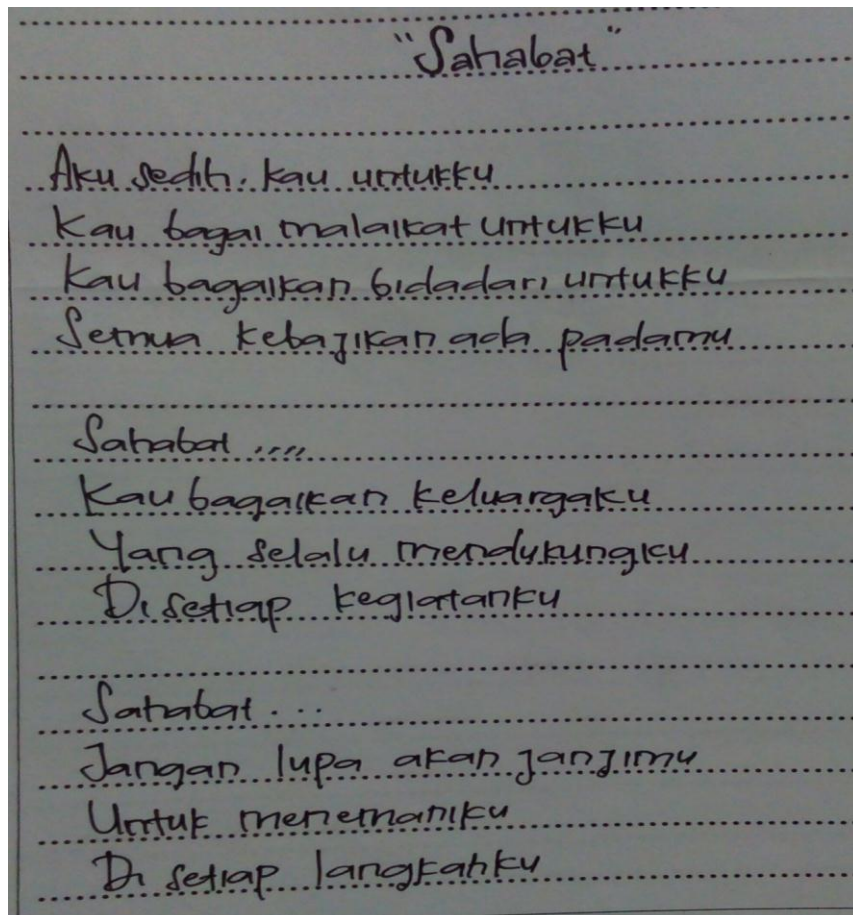 "Sahabat"
Aku sedih. kau untukku
Kau bagai malaikat untukku
Kau bagaikan bidadari untukku
Semua kebajikan ada padamu
Sahabat ....
Kau bagaikan keluargaku
Yang selalu mendukungku
Di setiap kegiatanku
Sahabat ...
Jangan lupa akan janjimu
Untuk menemaniku
Di setiap langkahku